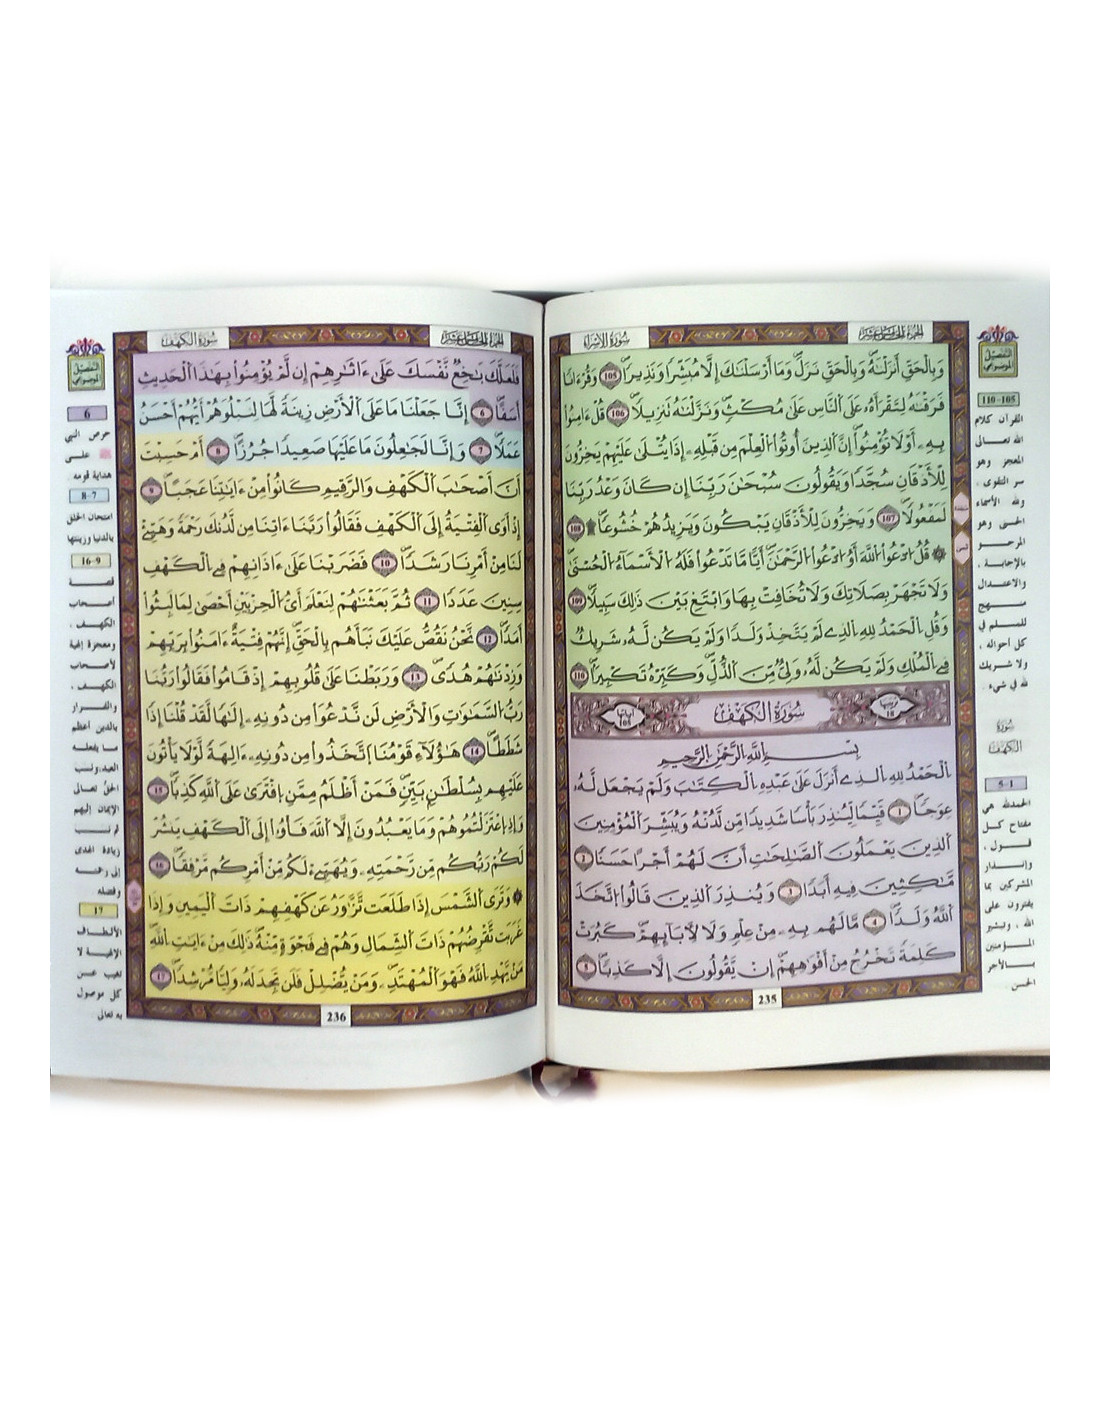 الجزء الخامس عشر
سُورَةُ الإِسْرَاء
وَبِالْحَقِّ أَنزَلْنَٰهُ وَبِالْحَقِّ نَزَلَ وَمَا أَرْسَلْنَٰكَ إِلَّا مُبَشِّرًا وَنَذِيرًا 105 وَقُرْءَانًا
فَرَقْنَٰهُ لِتَقْرَأَهُۥ عَلَى اَلنَّاسِ عَلَىٰ مُكْثٍ وَنَزَّلْنَٰهُ تَنزِيلًا 106 قُلْ ءَامِنُواْ
بِهِۦ أَوْ لَا تُؤْمِنُواْ إِنَّ اَلذِينَ أُوتُواْ اُلْعِلْمَ مِن قَبْلِهِۦ إِذَا يُتْلَىٰ عَلَيْهِمْ يَخِرُّونَ
لِلْأَذْقَانِ سُجَّدًا وَيَقُولُونَ سُبْحَٰنَ رَبِّنَا إِن كَانَ وَعْدُ رَبِّنَا
لَمَفْعُولًا 107 وَيَخِرُّونَ لِلْأَذْقَانِ يَبْكُونَ وَيَزِيدُهُمْ خُشُوعًا ۩ 108
۞ قُلُ اُدْعُواْ اُللَّهَ أَوُ اُدْعُواْ اُلرَّحْمَٰنَ أَيًّا مَّا تَدْعُواْ فَلَهُ اُلْأَسْمَاءُ اُلْحُسْنَىٰ
وَلَا تَجْهَرْ بِصَلَاتِكَ وَلَا تُخَافِتْ بِهَا وَابْتَغِ بَيْنَ ذَٰلِكَ سَبِيلًا 109
وَقُلِ اِلْحَمْدُ لِلهِ اِلذِے لَمْ يَتَّخِذْ وَلَدًا وَلَمْ يَكُن لَّهُۥ شَرِيكٌ
فِے اِلْمُلْكِ وَلَمْ يَكُن لَّهُۥ وَلِيٌّ مِّنَ اَلذُّلِّ وَكَبِّرْهُ تَكْبِيرًا 110
ترتيبها 18 سُورَةُ الْكَهْفِ آياتها 105
بِسْمِ اِللَّهِ اِلرَّحْمَٰنِ اِلرَّحِيمِ
اِلْحَمْدُ لِلهِ اِلذِے أَنزَلَ عَلَىٰ عَبْدِهِ اِلْكِتَٰبَ وَلَمْ يَجْعَل لَّهُۥ
عِوَجًا 1 قَيِّمًا لِّيُنذِرَ بَأْسًا شَدِيدًا مِّن لَّدُنْهُ وَيُبَشِّرَ اَلْمُؤْمِنِينَ
اَلذِينَ يَعْمَلُونَ اَلصَّٰلِحَٰتِ أَنَّ لَهُمْ أَجْرًا حَسَنًا 2
مَّٰكِثِينَ فِيهِ أَبَدًا 3 وَيُنذِرَ اَلذِينَ قَالُواْ اُتَّخَذَ
اَللَّهُ وَلَدًا 4 مَّا لَهُم بِهِۦ مِنْ عِلْمٍ وَلَا لِأَبَآئِهِمْ كَبُرَتْ
كَلِمَةً تَخْرُجُ مِنْ أَفْوَٰهِهِمْ إِنْ يَّقُولُونَ إِلَّا كَذِبًا 5
235
التفصيل الموضوعي
110-105
القرآن كلام
الله تعالى
المعجز وهو
سر التقوى .
ولله الأسماء
الحسنى وهو
المرجو
بالإجابة .
والاعتدال
منهج
للمسلم في
كل أحواله .
ولا شريك
لله في شيء .
سورة
الكهف
5-1
الحمدلله هي
مفتاح كل
قول .
وإنذار
المشركين بما
يفترون على
الله . وتبشير
المؤمنين
بالأجر
الحسن
الجزء الخامس عشر
سُورَةُ الكَهْف
فَلَعَلَّكَ بَٰخِعٌ نَّفْسَكَ عَلَىٰ ءَاثَٰرِهِمْ إِن لَّمْ يُؤْمِنُواْ بِهَٰذَا اَلْحَدِيثِ
أَسَفًا 6 إِنَّا جَعَلْنَا مَا عَلَى اَلْأَرْضِ زِينَةً لَّهَا لِنَبْلُوَهُمْ أَيُّهُمْ أَحْسَنُ
عَمَلًا 7 وَإِنَّا لَجَٰعِلُونَ مَا عَلَيْهَا صَعِيدًا جُرُزًا 8 أَمْ حَسِبْتَ
أَنَّ أَصْحَٰبَ اَلْكَهْفِ وَالرَّقِيمِ كَانُواْ مِنْ ءَايَٰتِنَا عَجَبًا 9
إِذْ أَوَى اَلْفِتْيَةُ إِلَى اَلْكَهْفِ فَقَالُواْ رَبَّنَا ءَاتِنَا مِن لَّدُنكَ رَحْمَةً وَهَيِّئْ
لَنَا مِنْ أَمْرِنَا رَشَدًا 10 فَضَرَبْنَا عَلَىٰ ءَاذَانِهِمْ فِے اِلْكَهْفِ
سِنِينَ عَدَدًا 11 ثُمَّ بَعَثْنَٰهُمْ لِنَعْلَمَ أَيُّ اُلْحِزْبَيْنِ أَحْصَىٰ لِمَا لَبِثُواْ
أَمَدًا 12 نَّحْنُ نَقُصُّ عَلَيْكَ نَبَأَهُم بِالْحَقِّ إِنَّهُمْ فِتْيَةٌ ءَامَنُواْ بِرَبِّهِمْ
وَزِدْنَٰهُمْ هُدًى 13 وَرَبَطْنَا عَلَىٰ قُلُوبِهِمْ إِذْ قَامُواْ فَقَالُواْ رَبُّنَا
رَبُّ السَّمَٰوَٰتِ وَالْأَرْضِ لَن نَّدْعُوَاْ مِن دُونِهِۦ إِلَٰهًا لَّقَدْ قُلْنَا إِذًا
شَطَطًا 14 هَٰؤُلَآءِ قَوْمُنَا اَتَّخَذُواْ مِن دُونِهِۦ ءَالِهَةً لَّوْلَا يَأْتُونَ
عَلَيْهِم بِسُلْطَٰنٍ بَيِّنٍ فَمَنْ أَظْلَمُ مِمَّنِ اِفْتَرَىٰ عَلَى اَللَّهِ كَذِبًا 15
وَإِذِ اِعْتَزَلْتُمُوهُمْ وَمَا يَعْبُدُونَ إِلَّا اَللَّهَ فَأْوُواْ إِلَى اَلْكَهْفِ يَنشُرْ
لَكُمْ رَبُّكُم مِّن رَّحْمَتِهِۦ وَيُهَيِّئْ لَكُم مِّنْ أَمْرِكُم مَّرْفِقًا 16
۞ وَتَرَى اَلشَّمْسَ إِذَا طَلَعَت تَّزَّٰوَرُ عَن كَهْفِهِمْ ذَاتَ اَلْيَمِينِ وَإِذَا
غَرَبَت تَّقْرِضُهُمْ ذَاتَ اَلشِّمَالِ وَهُمْ فِے فَجْوَةٍ مِّنْهُ ذَٰلِكَ مِنْ ءَايَٰتِ اِللَّهِ
مَنْ يَّهْدِ اِللَّهُ فَهُوَ اَلْمُهْتَدِۦ وَمَنْ يُّضْلِلْ فَلَن تَجِدَ لَهُۥ وَلِيًّا مُّرْشِدًا 17
236
التفصيل الموضوعي
6
حرص النبي
ﷺ على
هداية قومه .
8-7
امتحان الخلق
بالدنيا وزينتها
16-9
قصة
أصحاب
الكهف .
ومعجزة إلهية
لأصحاب
الكهف .
والفرار
بالدين أعظم
ما يفعله
العبد. ونسب
الحق تعالى
الإيمان إليهم
ثم نسب
زيادة الهدى
إلى رحمته
وفضله
17
الألطاف
الإلهية لا
تغيب عمن
كل موصول
به تعالى